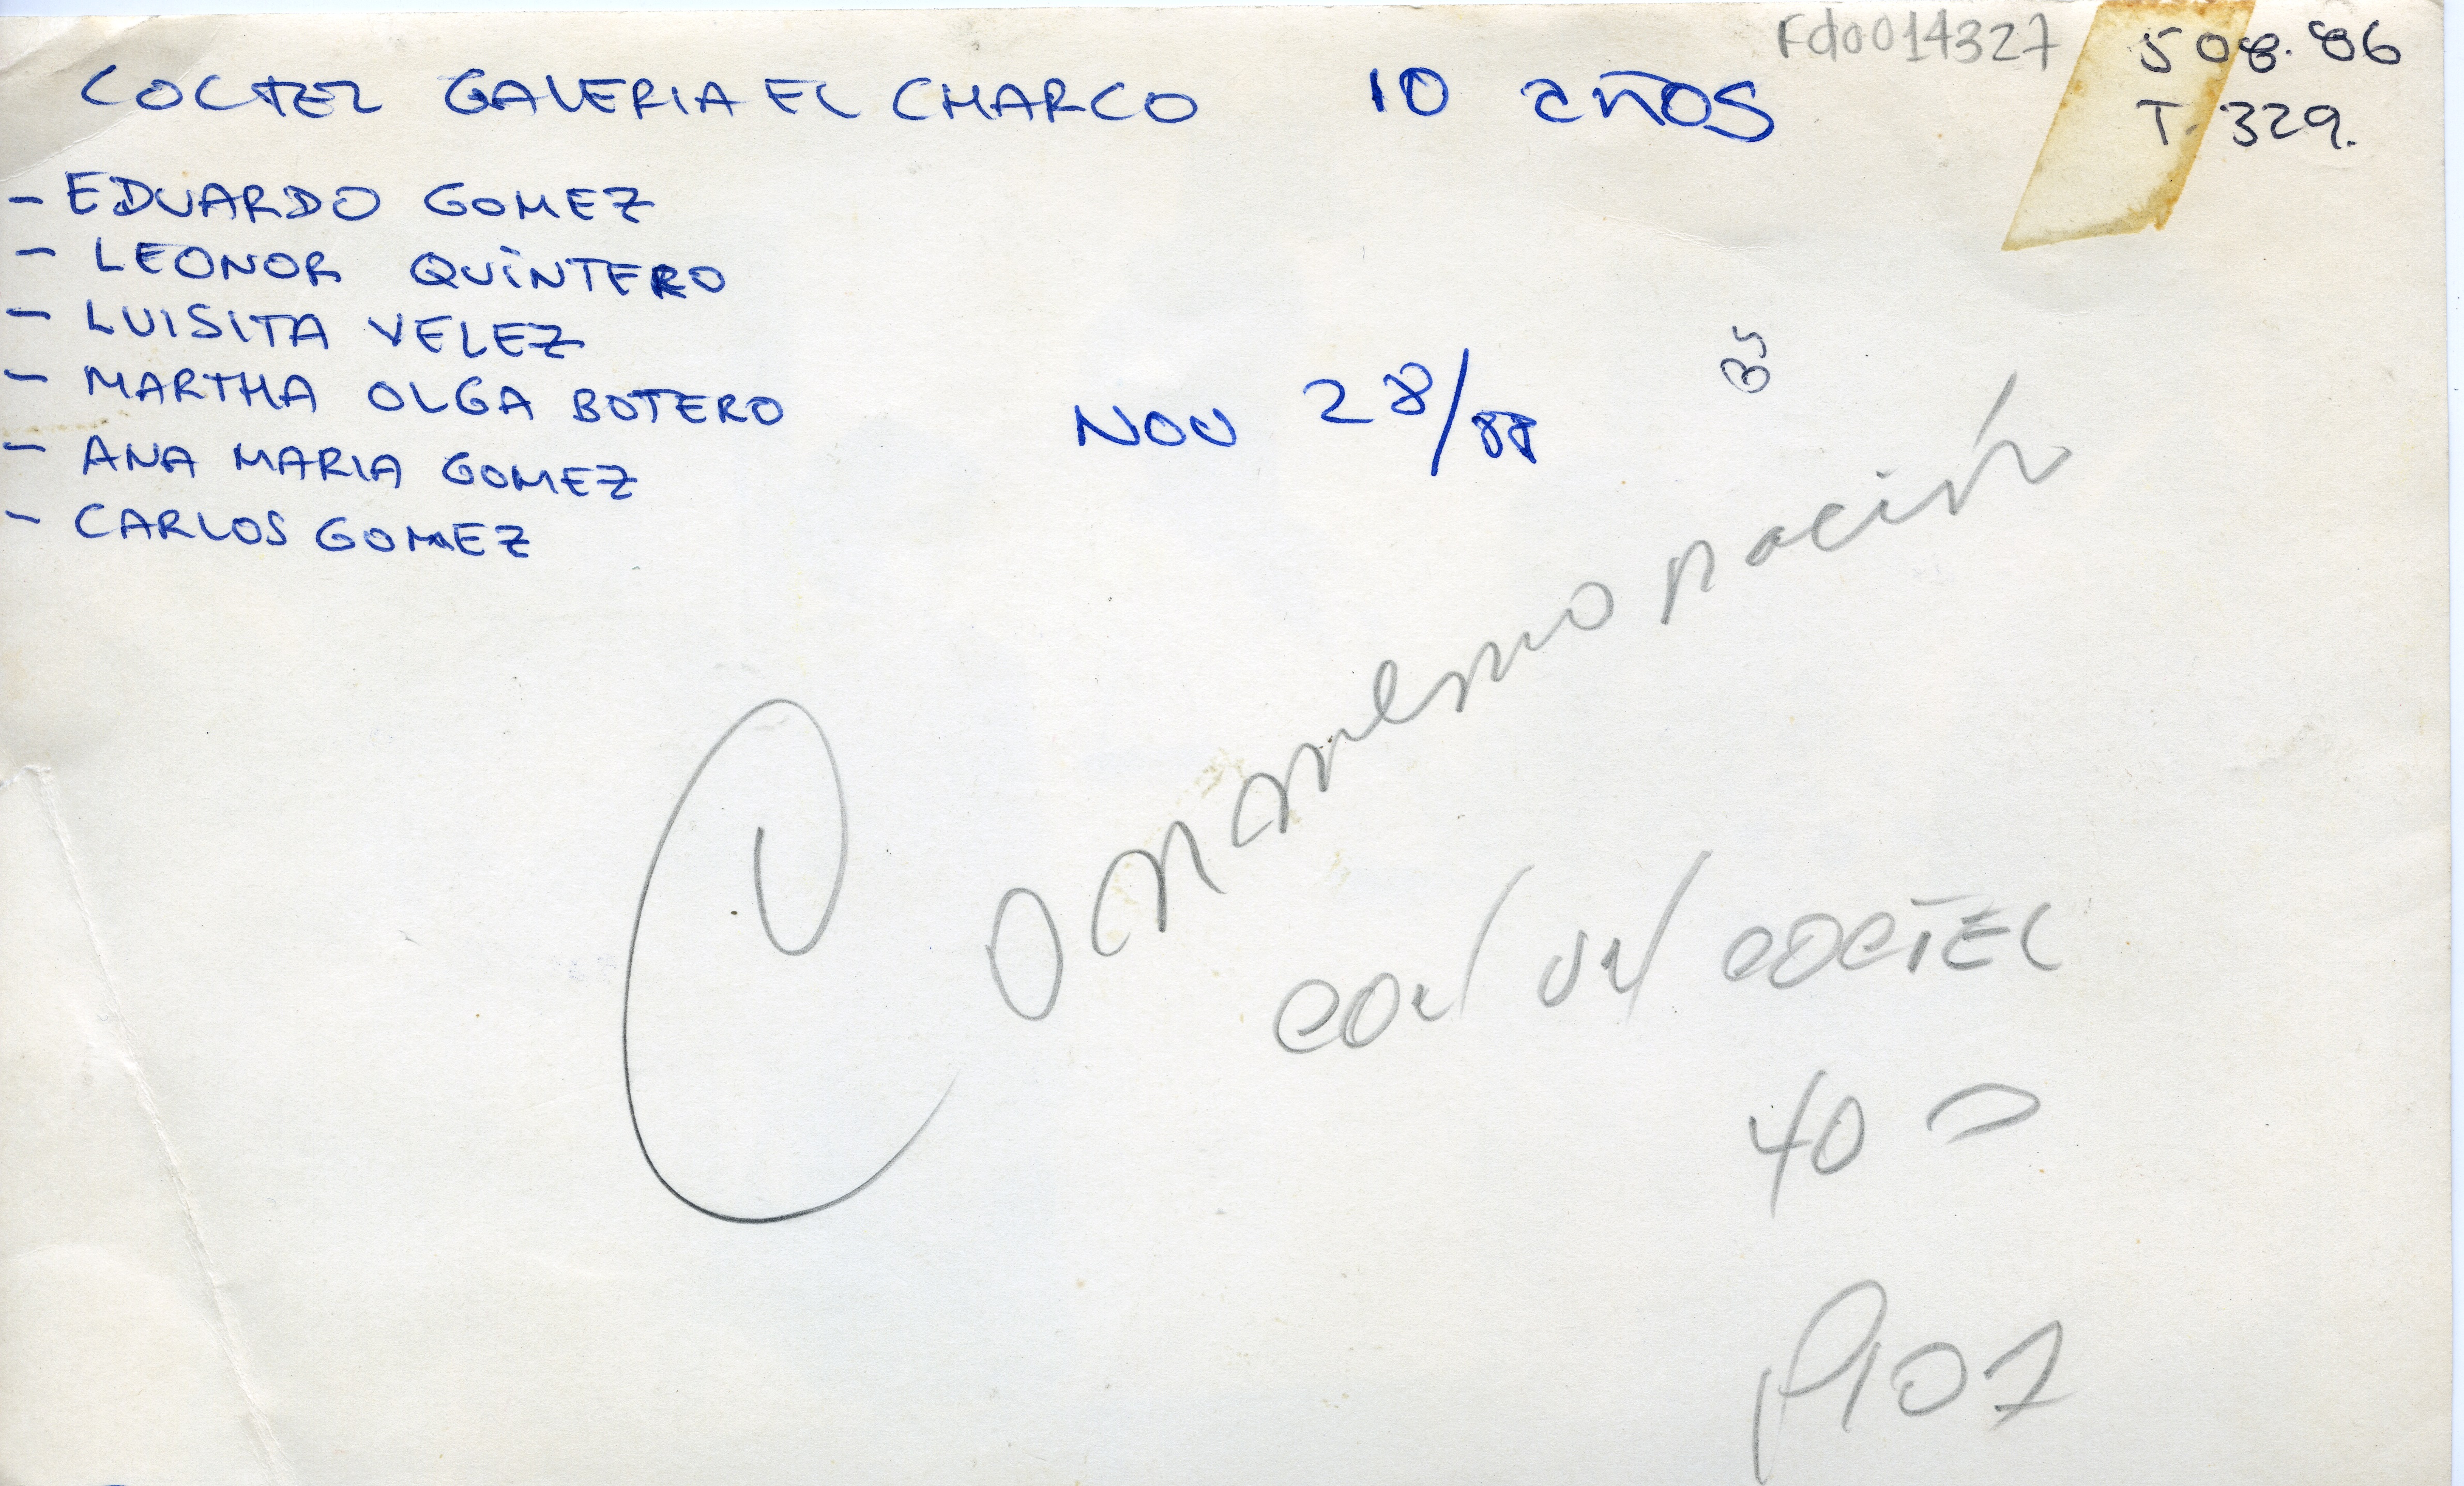 Fdo014327
508.86
T. 329.
COCTEL GALERIA EL CHARCO 10 años
- EDUARDO GOMEZ
- LEONOR QUINTERO
- LUISITA VELEZ
- MARTHA OLGA BOTERO
- ANA MARIA GOMEZ
- CARLOS GOMEZ
NOV 28/88
Conmemoración
con un coctel
40
P107